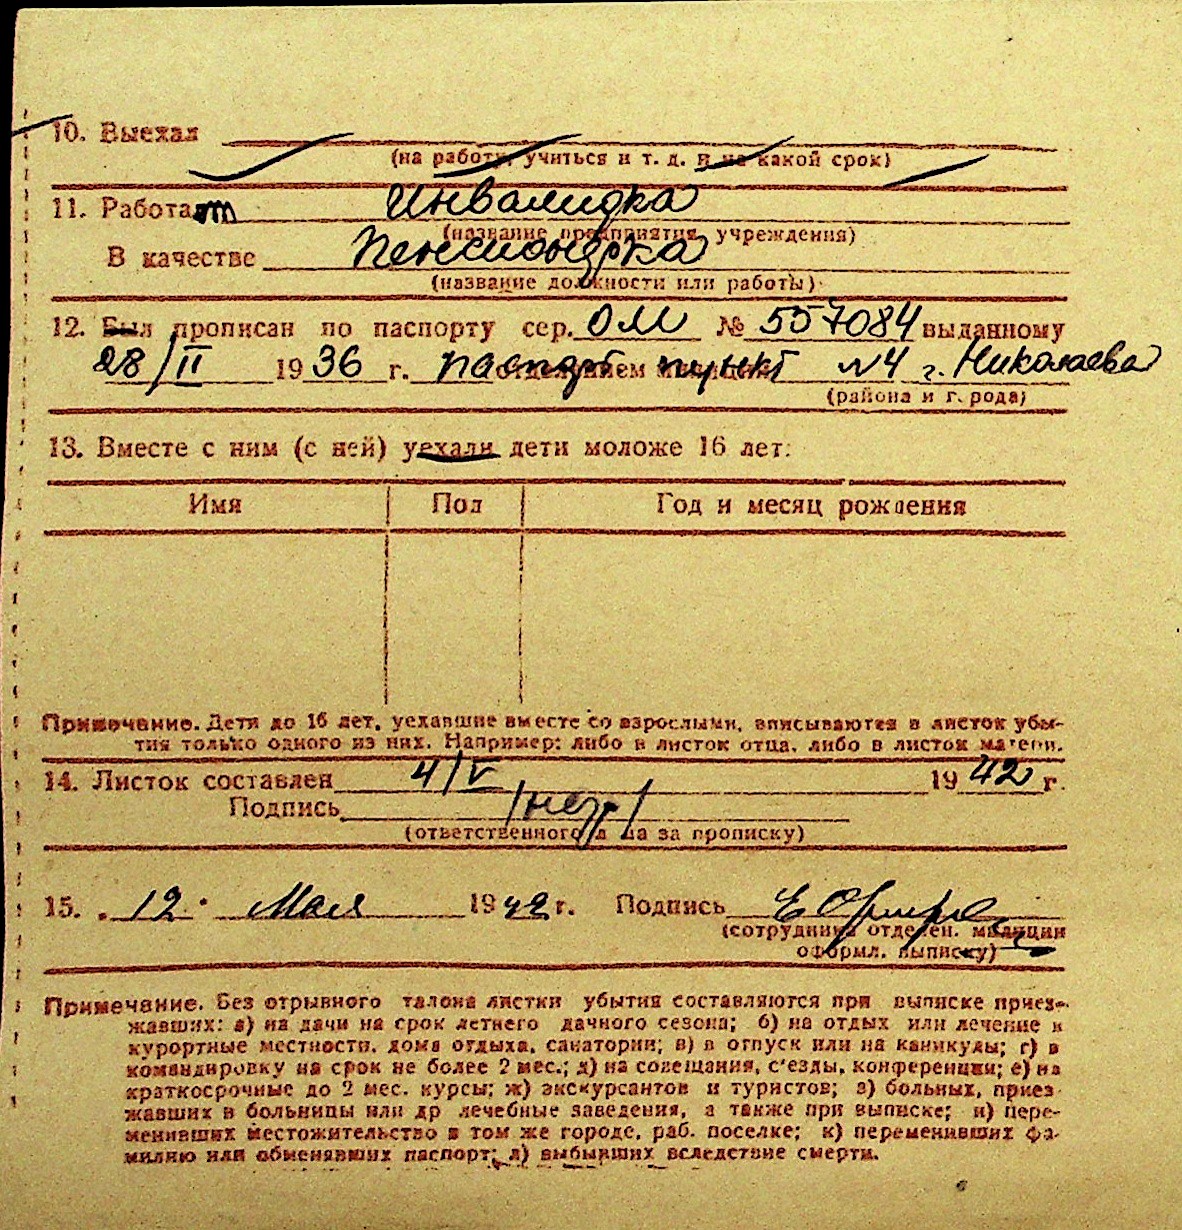 10. Выехал
(на работу, учиться и т. д. и на какой срок)
11. Работает Инвалидка
(название предприятия, учреждения)
В качестве Пенсионерка
(название должности или работы)
12. Был прописан по паспорту сер. ОМ № 557084 выданному
28/II 1936 г. паспорт пункт отделением милиции №4 г. Николаева
(района и города)
13. Вместе с ним (с ней) уехали дети моложе 16 лет:
Имя Пол Год и месяц рождения
Примечание. Дети до 16 лет, уехавшие вместе со взрослыми, вписываются в листок убы-
тия только одного из них. Например: либо в листок отца, либо в листок матери.
14. Листок составлен 4/V 1942 г.
Подпись /нет/
(ответственного лица за прописку)
15. 12 Мая 1942 г. Подпись
(сотрудника отделен. милиции
оформл. выписку)
Примечание. Без отрывного талона листки убытия составляются при выписке приез-
жавших: а) на дачи на срок летнего дачного сезона; б) на отдых или лечение в
курортные местности, дома отдыха, санатории; в) в отпуск или на каникулы; г) в
командировку на срок не более 2 мес.; д) на совещания, с'езды, конференции; е) на
краткосрочные до 2 мес. курсы; ж) экскурсантов и туристов; з) больных, приез-
жавших в больницы или др лечебные заведения, а также при выписке; и) пере-
менивших местожительство в том же городе, раб. поселке; к) переменивших фа-
милию или обменявших паспорт; л) выбывших вследствие смерти.